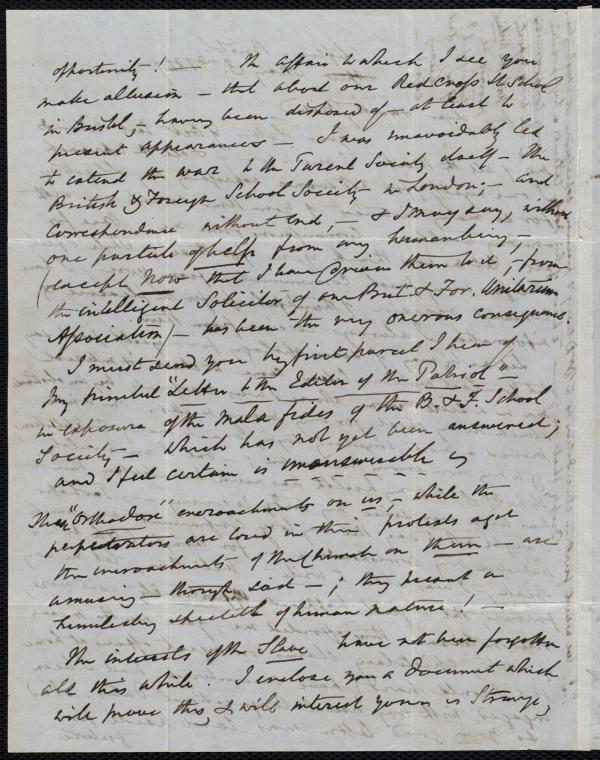 opportunity! — The affair to which I see you
make allusion — that about our Red Cross St School
in Bristol, — having been disposed of — at least to
present appearances — I was unavoidably led
to extend the war to the Parent Society itself — the
British & Foreign School Society in London; — and
Correspondence without end, — & I may say, without
one particle of help from any human being, —
(except now that I have driven them to it, — from
the intelligent Solicitor of our Brit & For. Unitarian
Association) — has been the very onerous consequence.
I must send you by first parcel I hear of
my printed "Letter to the Editor of the Patriot" —
in exposure of the mala fides of the B. & F. School
Society — which has not yet been answered;
and I feel certain is unanswerable
These "Orthodox" encroachments on us, — while the
perpetrators are loud in their protests agst
the encroachments of the Church on them — are
amusing — though sad — ; they present a
humiliating spectacle of human nature! —
The interests of the Slave have not been forgotten
all this while. I enclose you a document which
will prove this, & will interest you as Strange,